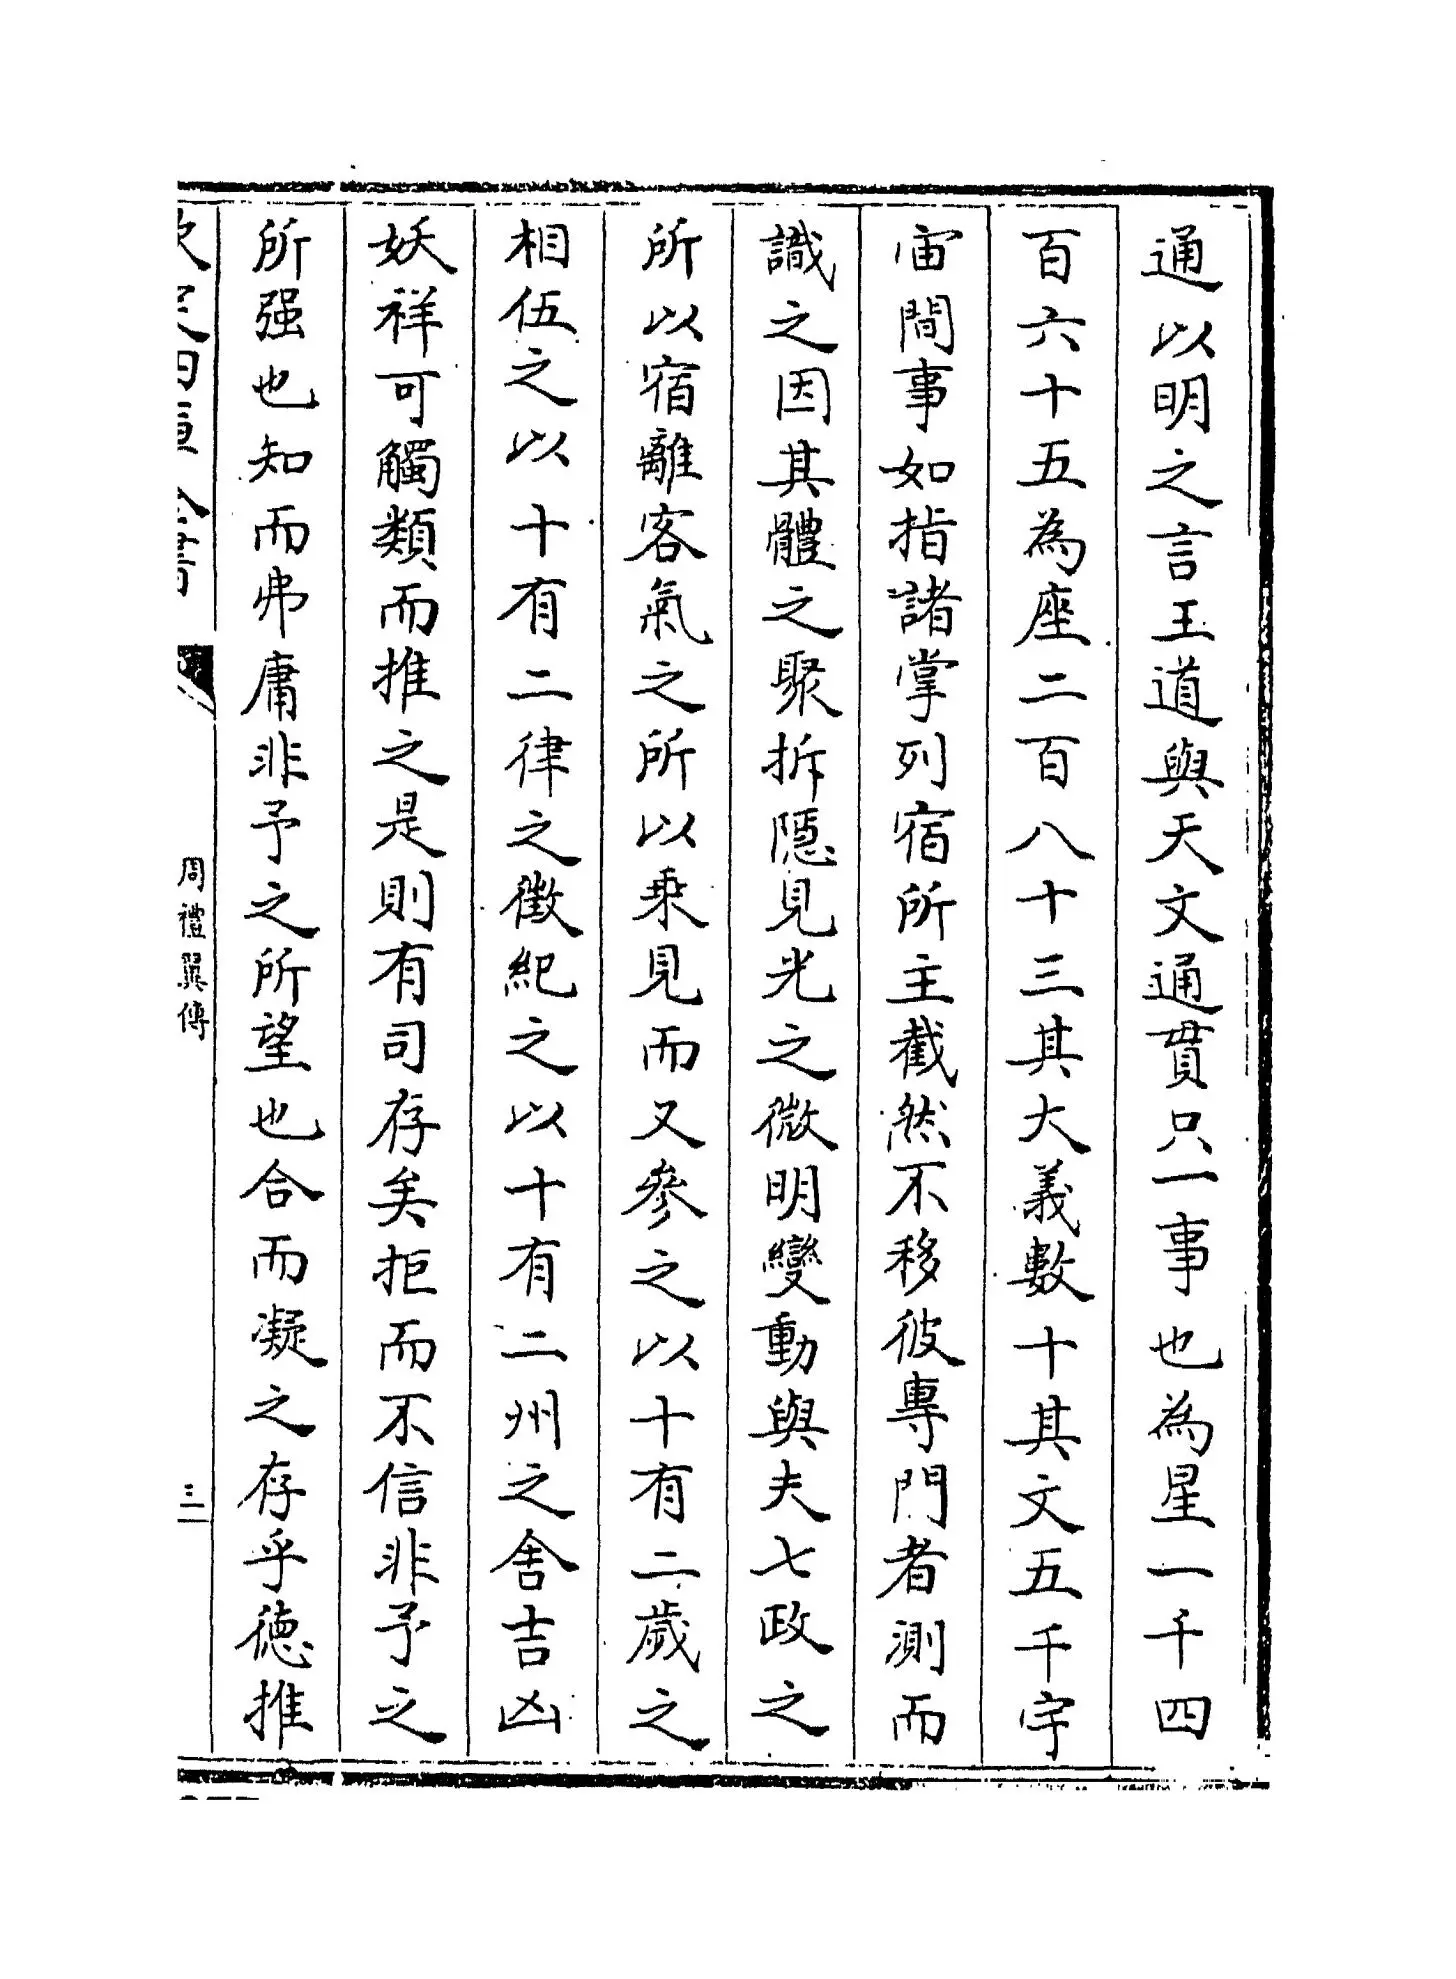 通以明之言王道與天文通貫只一事也為星一千四
百六十五為座二百八十三其大義數十其文五千宇
宙間事如指諸掌列宿所主截然不移彼專門者測而
識之因其體之聚拆隱見光之微明變動與夫七政之
所以宿離客氣之所以乗見而又參之以十有二歲之
相伍之以十有二律之徵紀之以十有二州之舎吉凶
妖祥可觸類而推之是則有司存矣拒而不信非予之
所强也知而弗庸非予之所望也合而凝之存乎德推
欽定四庫全書
周禮翼傳
三